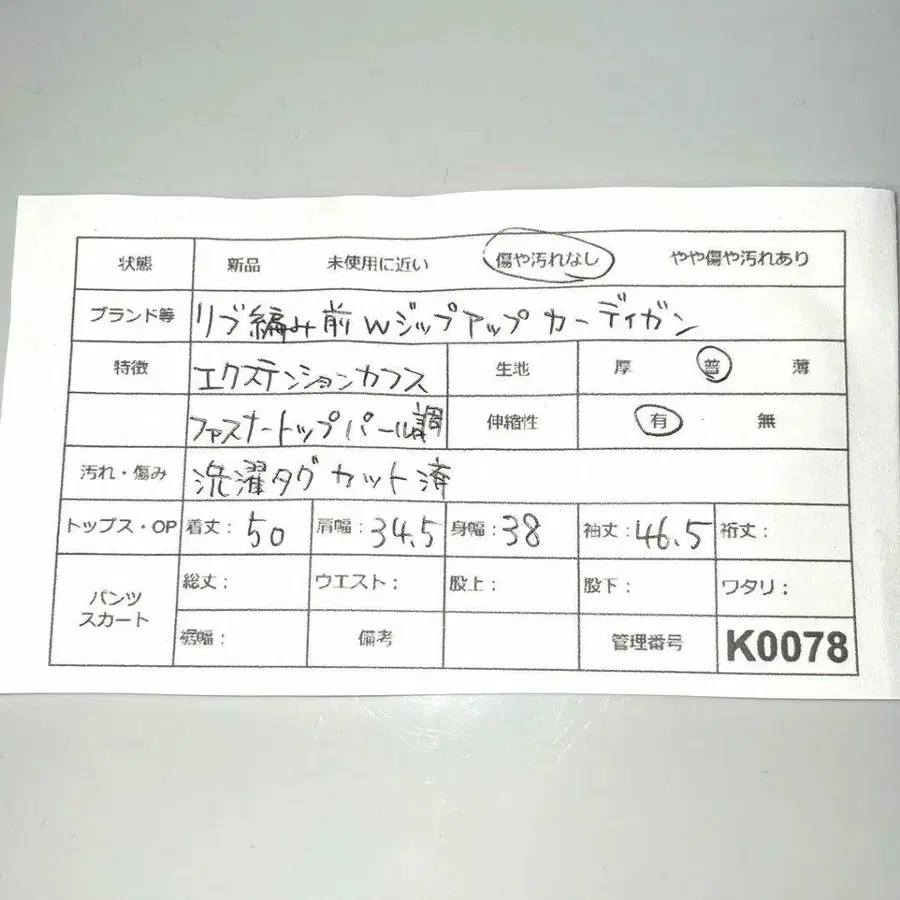 状態 新品 未使用に近い 傷や汚れなし やや傷や汚れあり
ブランド等 リブ編み前Wジップアップカーディガン
特徴 エクステンションカフス 生地 厚 普 薄
ファスナートップパール調 伸縮性 有 無
汚れ・傷み 洗濯タグカット済
トップス・OP 着丈: 50 肩幅: 34.5 身幅: 38 袖丈: 46.5 裄丈:
パンツ スカート 総丈: ウエスト: 股上: 股下: ワタリ:
裾幅: 備考 管理番号 K0078